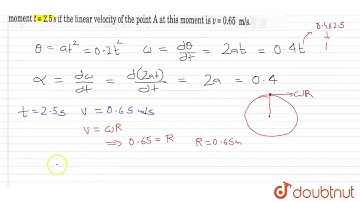 moment t = 2.5 s if the linear velocity of the point A at this moment is v = 0.65 m/s.
0.4x2.5
θ = at² = 0.2t² ω = dθ/dt = 2at = 0.4t 1
α = dω/dt = d(2at)/dt = 2a = 0.4
t = 2.5s v = 0.65 m/s
ωR
v = ωR
⇒ 0.65 = R R = 0.65m
doubtnut